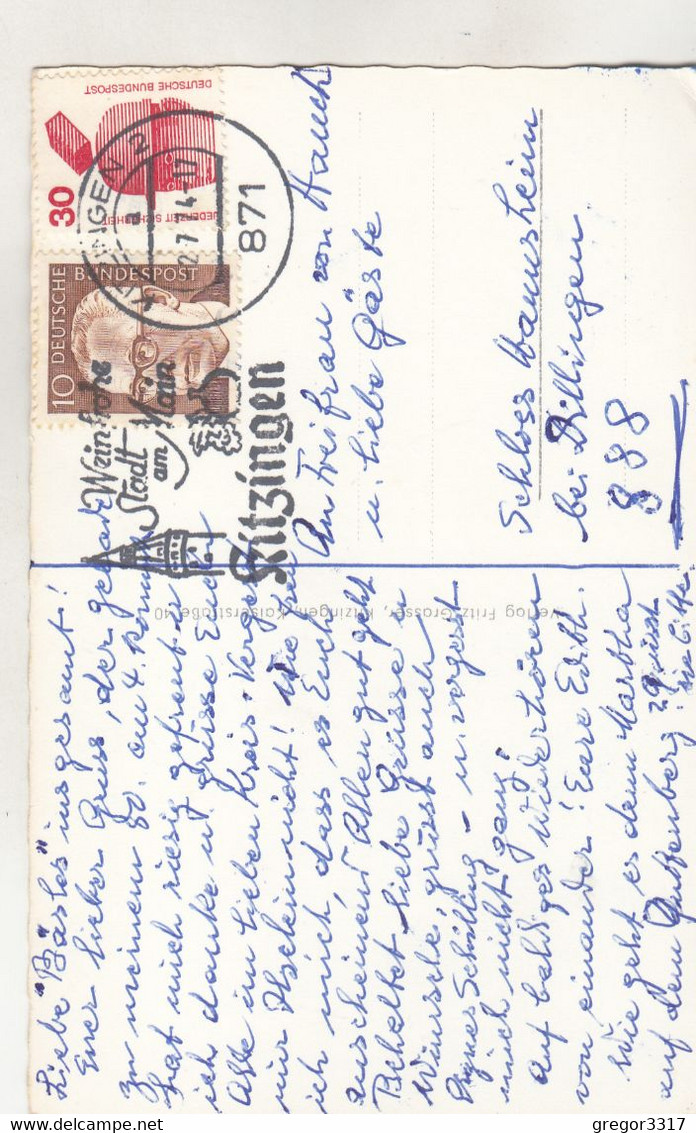 Liebe "Bäsles" insgesamt!
Euer lieber Gruss, der gerade
zu meinem 80. am 4. kommt
hat mich riesig gefreut u.
ich danke u. grüsse Euch
Alle im lieben Kreis. Vergesst
mir nicht! Wie freu
ich mich, dass es Euch
anscheinend Allen gut geht
Behaltet liebe Grüsse u
Wünsche, grüsst auch
Agnes Schilling – u. vergesst
mich nicht ganz!
Auf baldiges Wiederhören
von einander! Eure Edith.
Wie geht es denn Martha
auf dem Guttenberg?
grüsst
sie bitte
Verlag Fritz Grosser, Kitzingen, Kaiserstraße 10
An Freifrau von Hauch
u. liebe Gäste
Schloss
bei Dillingen
888
DEUTSCHE BUNDESPOST
JEDERZEIT SICHERHEIT
30
DEUTSCHE
BUNDESPOST
10
KITZINGEN 2
a
2.7.74-17
871
Weinfrohe
Stadt
am Main
Kitzingen
gregor3317